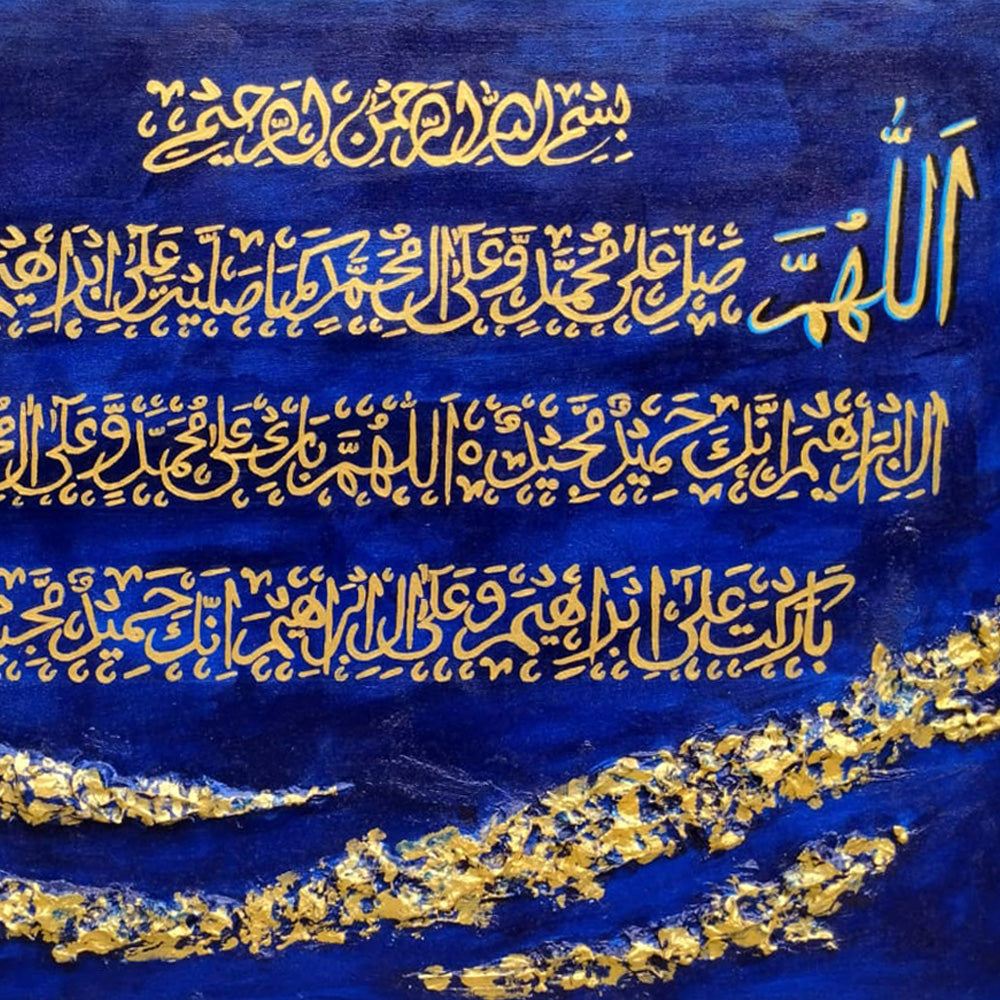 بِسْمِ اللهِ الرَّحْمٰنِ الرَّحِيْمِ
اَللّٰهُمَّ صَلِّ عَلٰى مُحَمَّدٍ وَّعَلٰٓى اٰلِ مُحَمَّدٍ كَمَا صَلَّيْتَ عَلٰٓى اِبْرَاهِيْمَ
اٰلِ اِبْرَاهِيْمَ اِنَّكَ حَمِيْدٌ مَّجِيْدٌ ہ اَللّٰهُمَّ بَارِكْ عَلٰى مُحَمَّدٍ وَّعَلٰٓى اٰلِ
بَارَكْتَ عَلٰٓى اِبْرَاهِيْمَ وَعَلٰٓى اٰلِ اِبْرَاهِيْمَ اِنَّكَ حَمِيْدٌ